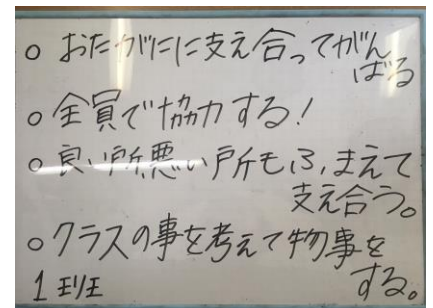 ○ おたがいに支え合ってがん
ばる
○ 全員で協力する!
○ 良い所悪い所もふまえて
支え合う。
○ クラスの事を考えて物事を
する。
1班